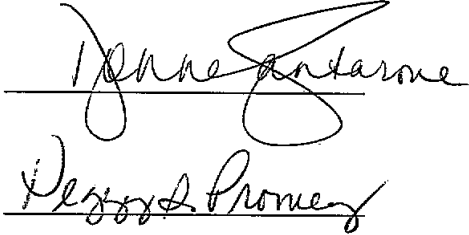 Donne Santarone
Peggy S. Promey